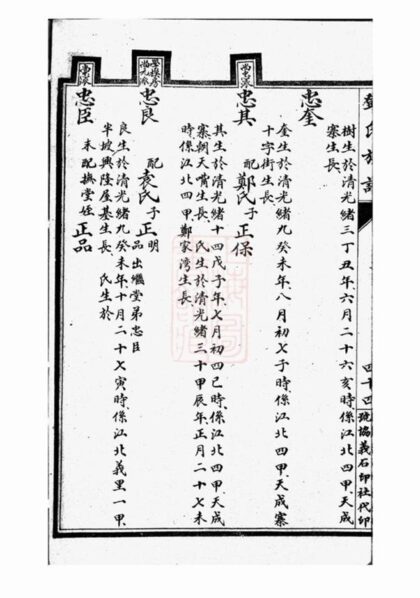 氏族譜 四十四 號協義石印社代印
樹生於清光緒三丁丑年六月二十六亥時係江北四甲天成
寨生長
忠奎
奎生於清光緒九癸未年八月初七子時係江北四甲天成寨
十字街生長
忠其 配鄭氏子正保
其生於清光緒十四戊子年七月初四巳時係江北四甲天成
寨朝天嘴生長 氏生於清光緒三十甲辰年正月二十七未
時係江北四甲鄭家湾生長
忠良 配袁氏子正明 品出繼堂弟忠臣
良生於清光緒九癸未年十月二十七寅時係江北義里一甲
半坡興隆屋基生長 氏生於
忠臣 未配撫堂姪正品